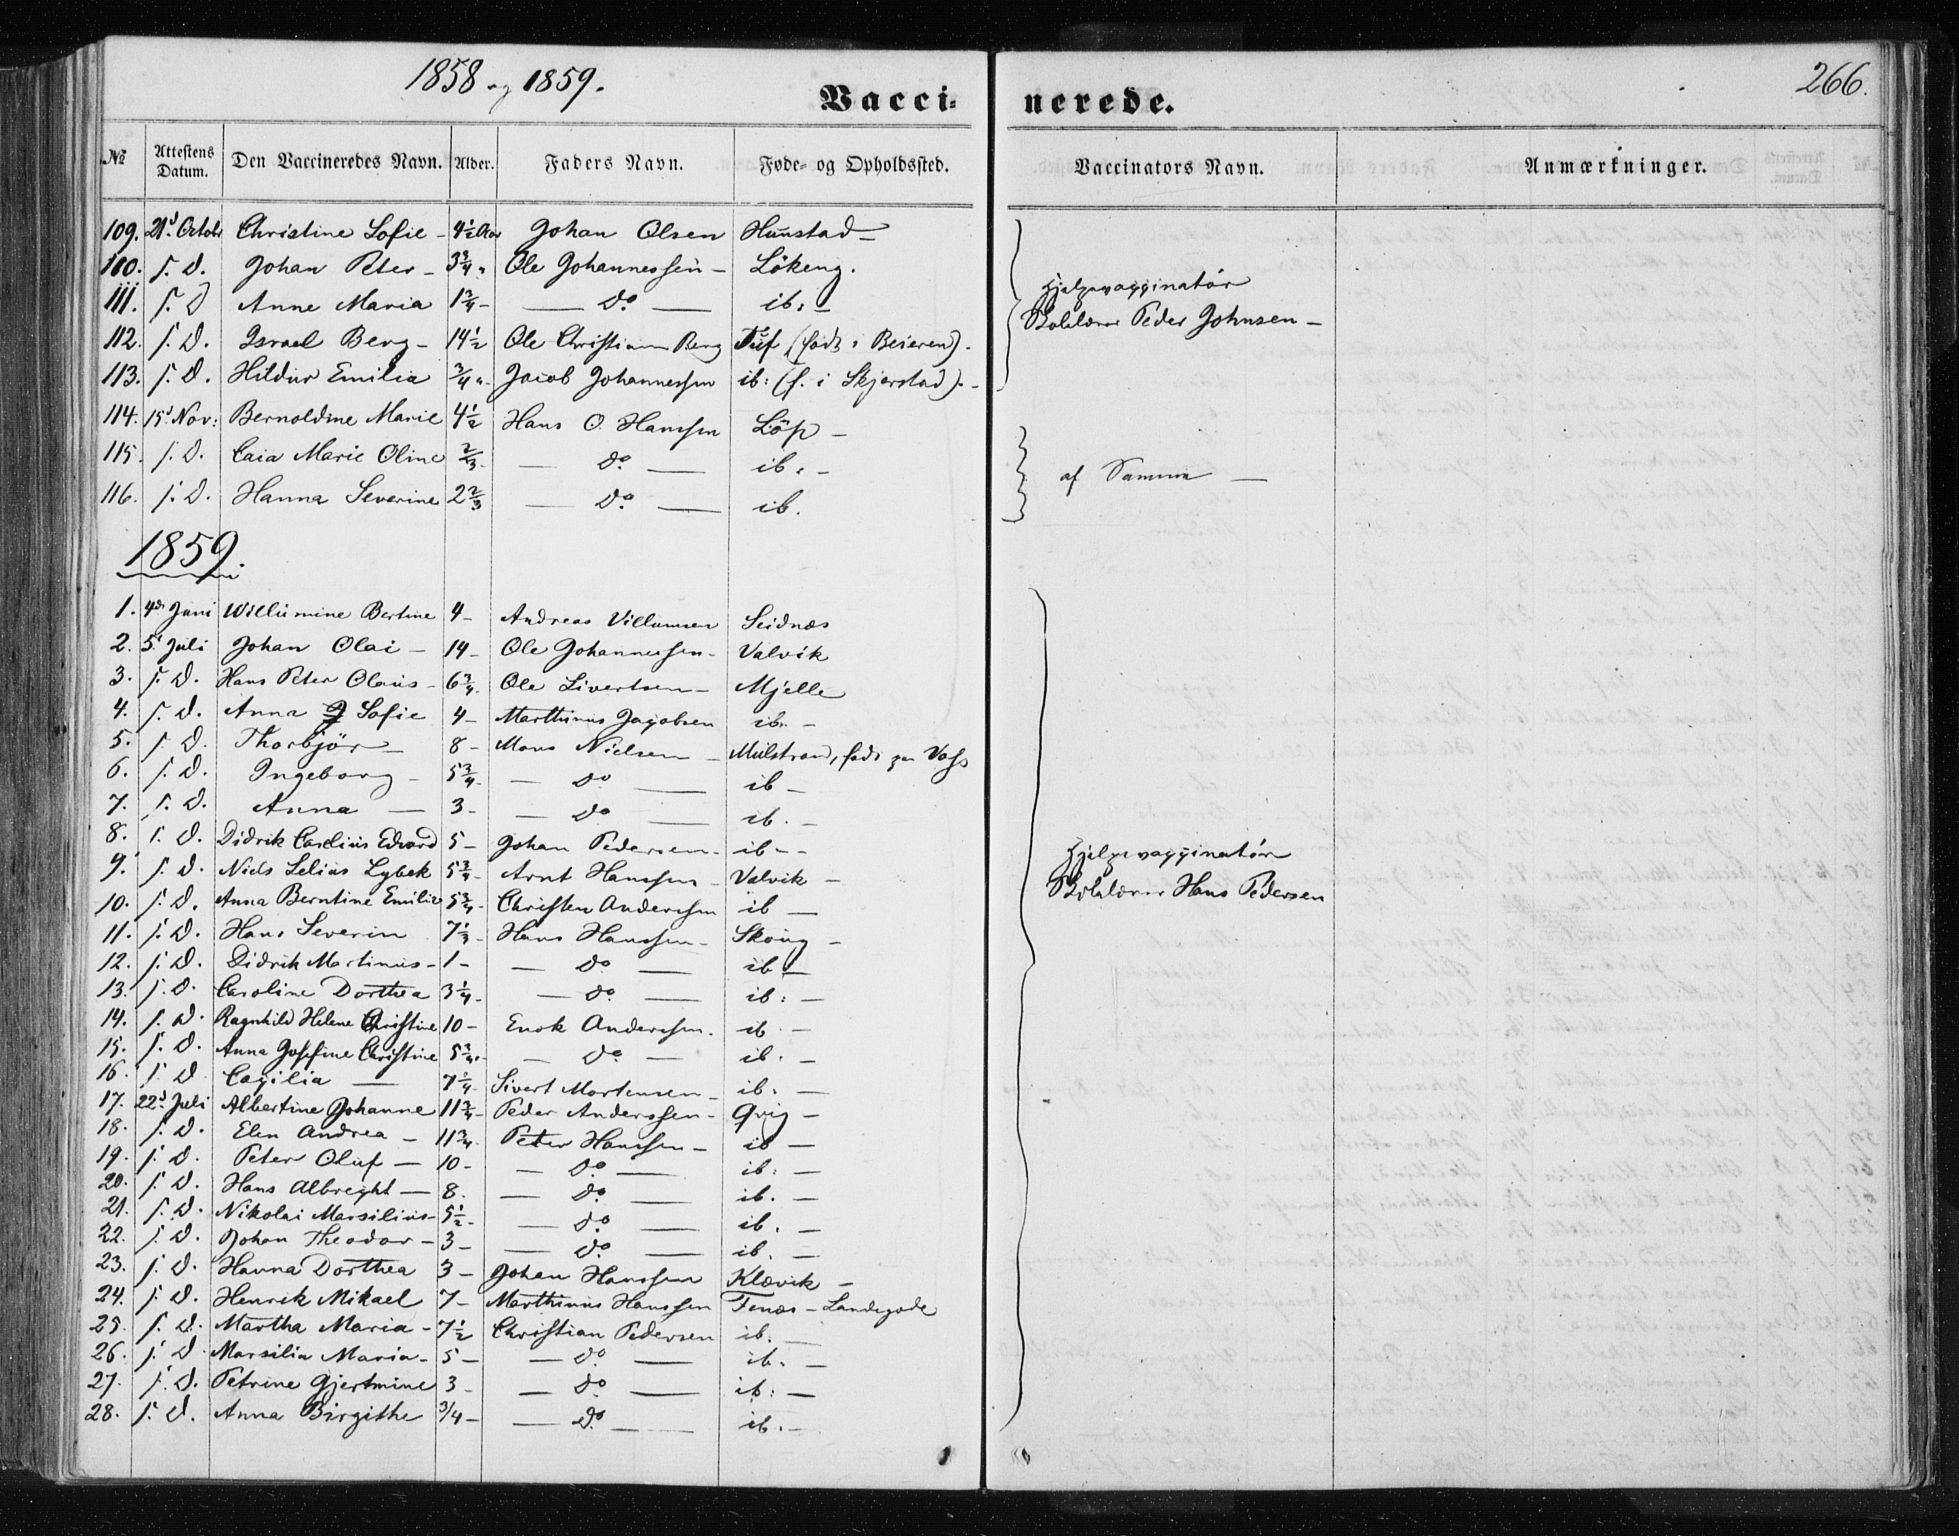 1858 og 1859.
266.
Vacci- nerede.
№ | Attestens Datum. | Den Vaccineredes Navn. | Alder. | Faders Navn. | Føde- og Opholdssted. | Vaccinators Navn. | Anmærkninger.
109. 21d Octobr Christine Sofie - 4½ Aar Johan Olsen Hunstad -
110. s. D. Johan Peter - 3¾ " Ole Johannessen - Lökeng.
111. s. D Anne Maria 1¾ - — do — ib. -
112. s. D. Israel Berg - 14½ Ole Christian Berg Tuf (født i Beieren).
113. s. D. Hildur Emilia ¾ " Jacob Johannessen ib: (f. i Skjerstad). -
Hjelpevaccinatör
Skolelærer Peder Johnsen -
114. 15d Nov: Bernoldine Marie 4½ Hans O. Hanssen Löp -
115. s. D. Caia Marie Oline ⅔ - — do. — ib. -
116. s. D. Hanna Severine 2⅔ — do. — ib.
af Samme —
1859.
1. 4de Juni Willumine Bertine 4 - Andreas Villumsen Seidnæs
2. 5d Juli Johan Olai - 14 - Ole Johannessen - Valvik
3. s. D. Hans Peter Olaus - 6¾ - Ole Sivertsen - Mjelle
4. s. D. Anna Sofie 4 - Marthinus Jacobsen ib. -
5. s. D. Thorbjör - 8 - Mons Nielsen - Mulstrand, født paa Voss
6. s. D. Ingeborg - 5¾ - — do — ib -
7. s. D. Anna — 3 - — do — ib. -
8. s. D. Didrik Carelius Edvard 5 - Johan Pedersen - ib - -
9. s. D. Niels Selius Lybek 5¾ - Arnt Hanssen - Valvik -
10. s. D. Anna Berntine Emilie 5¾ - Christen Anderssen ib —
11. s. D. Hans Severin 7⅓ - Hans Hanssen - Skoug -
12. s. D. Didrik Martinus - 1 - — do — ib —
13. s. D. Caroline Dorthea 3¼ - — do. — ib: —
14. s. D. Ragnhild Helene Christine 10 - Enok Anderssen. ib. -
15. s. D. Anna Josefine Christine 5¾ " — do — ib. -
16. s. D Cecilia — 7¼ - Sivert Mortensen - ib. -
17. 22d Juli Albertine Johanne 11¾ - Peder Anderssen - Qvig -
18. s. D. Elen Andrea - 11¾ - Peter Hanssen - ib —
19. s. D. Peter Oluf — 10 - — do. — ib: —
20. s. D. Hans Albreght — 8. — do. — ib. —
21. s. D. Nikolai Marsilius - 5½ - — do. — ib. —
22. s. D. Johan Theodor - 3 - — do. — ib. —
23. s. D. Hanna Dorthea 3 - Johan Hanssen Klævik -
24. s. D. Henrik Mikael 7 - Marthinus Hanssen Fenæs - Landegode
25. s. D. Martha Maria - 7½ Christian Pedersen ib. —
26. s. D Marsilia Maria - 5 - — do. — ib. —
27. s. D. Petrine Gjertmine 3 - — do — ib: —
28. s. D. Anna Birgithe ¾ - — do. — ib. -
Hjelpevaccinatör
Skolelærer Hans Pedersen